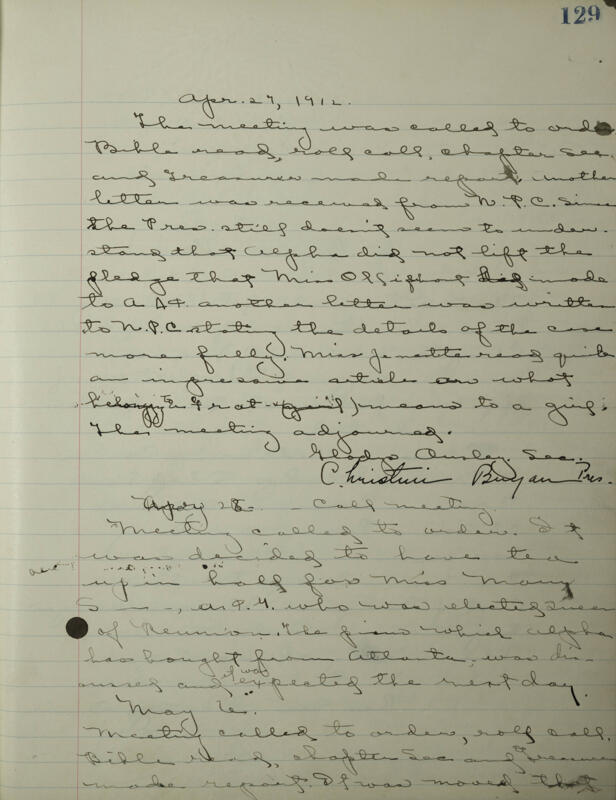 129
Apr. 27, 1912.
The meeting was called to order
Bible read, roll call, chapter Sec
and Treasurer made report, another
letter was received from N.P.C. Since
the Pres. still doesn't seem to under-
stand that Alpha did not lift the
pledge that Miss made
to A A. another letter was written
to N.P.C. stating the details of the case
more fully. Miss Jenette read quite
an article on what
belonging to Frat means to a girl.
The meeting adjourned.
Gladys Sec.
Christine Bryan Pres.
28. - Call meeting.
Meeting called to order. It
was decided to have tea
up in hall for Miss Mary
S - - -, who was elected queen
of Reunion. The which Alpha
has bought from Atlanta, was dis-
cussed and it was expected the next day.
May 6.
Meeting called to order, roll call.
Bible read, chapter Sec and Treasurer
made report. It was moved that